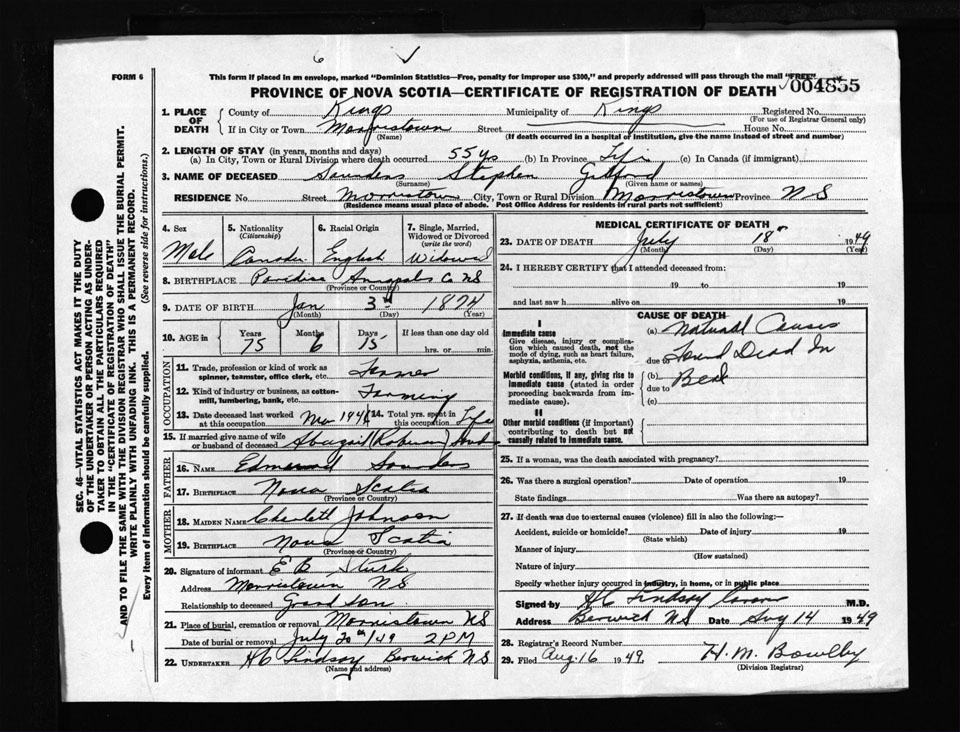 6
FORM 6
This form if placed in an envelope, marked "Dominion Statistics—Free, penalty for improper use $300," and properly addressed will pass through the mail "FREE"
PROVINCE OF NOVA SCOTIA—CERTIFICATE OF REGISTRATION OF DEATH
004855
1. PLACE OF DEATH County of Kings Municipality of Kings Registered No.
(For use of Registrar General only)
If in City or Town Morristown Street House No.
(Name) (If death occurred in a hospital or institution, give the name instead of street and number)
2. LENGTH OF STAY (in years, months and days)
(a) In City, Town or Rural Division where death occurred 55 ys (b) In Province Life (c) In Canada (if immigrant)
3. NAME OF DECEASED Saunders Stephen Gifford
(Surname) (Given name or names)
RESIDENCE No. Street Morristown City, Town or Rural Division Morristown Province NS
(Residence means usual place of abode. Post Office Address for residents in rural parts not sufficient)
4. Sex Male
5. Nationality (Citizenship) Canadian
6. Racial Origin English
7. Single, Married, Widowed or Divorced (write the word) Widowed
8. BIRTHPLACE Paradise Annapolis Co NS
(Province or County)
9. DATE OF BIRTH Jan 3rd 1874
(Month) (Day) (Year)
10. AGE in Years 75 Months 6 Days 15 If less than one day old
hrs. or min.
OCCUPATION
11. Trade, profession or kind of work as spinner, teamster, office clerk, etc. Farmer
12. Kind of industry or business, as cotton-mill, lumbering, bank, etc. Farming
13. Date deceased last worked at this occupation
14. Total yrs. spent in this occupation Life
15. If married give name of wife or husband of deceased Abigail (Robinson)
FATHER
16. NAME Edmund Saunders
17. BIRTHPLACE Nova Scotia
(Province or Country)
MOTHER
18. MAIDEN NAME Johnson
19. BIRTHPLACE Nova Scotia
(Province or Country)
20. Signature of informant E B
Address Morristown NS
Relationship to deceased Grand Son
21. Place of burial, cremation or removal Morristown NS
Date of burial or removal July 20th/49 2 PM
22. UNDERTAKER HC Lindsay Berwick NS
(Name and address)
MEDICAL CERTIFICATE OF DEATH
23. DATE OF DEATH July 18th 1949
(Month) (Day) (Year)
24. I HEREBY CERTIFY that I attended deceased from:
19 to 19
and last saw h alive on 19
CAUSE OF DEATH
I
Immediate cause
Give disease, injury or complication which caused death, not the mode of dying, such as heart failure, asphyxia, asthenia, etc.
(a) Natural Causes
due to Found Dead In
Morbid conditions, if any, giving rise to immediate cause (stated in order proceeding backwards from immediate cause).
(b) Bed
due to
(c)
II
Other morbid conditions (if important) contributing to death but not causally related to immediate cause.
25. If a woman, was the death associated with pregnancy?
26. Was there a surgical operation? Date of operation 19
State findings Was there an autopsy?
27. If death was due to external causes (violence) fill in also the following:—
Accident, suicide or homicide? Date of injury 19
(State which)
Manner of injury
(How sustained)
Nature of injury
Specify whether injury occurred in industry, in home, or in public place
Signed by HC Lindsay Coroner M.D.
Address Berwick NS Date Aug 14 1949
28. Registrar's Record Number
29. Filed Aug. 16 1949. H. M. Bowlby
(Division Registrar)
SEC. 46—VITAL STATISTICS ACT MAKES IT THE DUTY
OF THE UNDERTAKER OR PERSON ACTING AS UNDER-
TAKER TO OBTAIN ALL THE PARTICULARS REQUIRED
IN THE "CERTIFICATE OF REGISTRATION OF DEATH"
AND TO FILE THE SAME WITH THE DIVISION REGISTRAR WHO SHALL ISSUE THE BURIAL PERMIT.
WRITE PLAINLY WITH UNFADING INK. THIS IS A PERMANENT RECORD.
Every item of information should be carefully supplied. (See reverse side for instructions.)